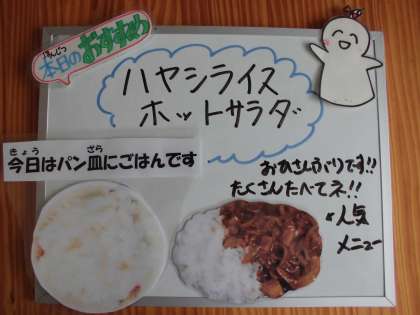 ほんじつ
本日のおすすめ
ハヤシライス
ホットサラダ
きょう ざら
今日はパン皿にごはんです
おひさしぶりです!!
たくさんたべてネ!!
人気
メニュー